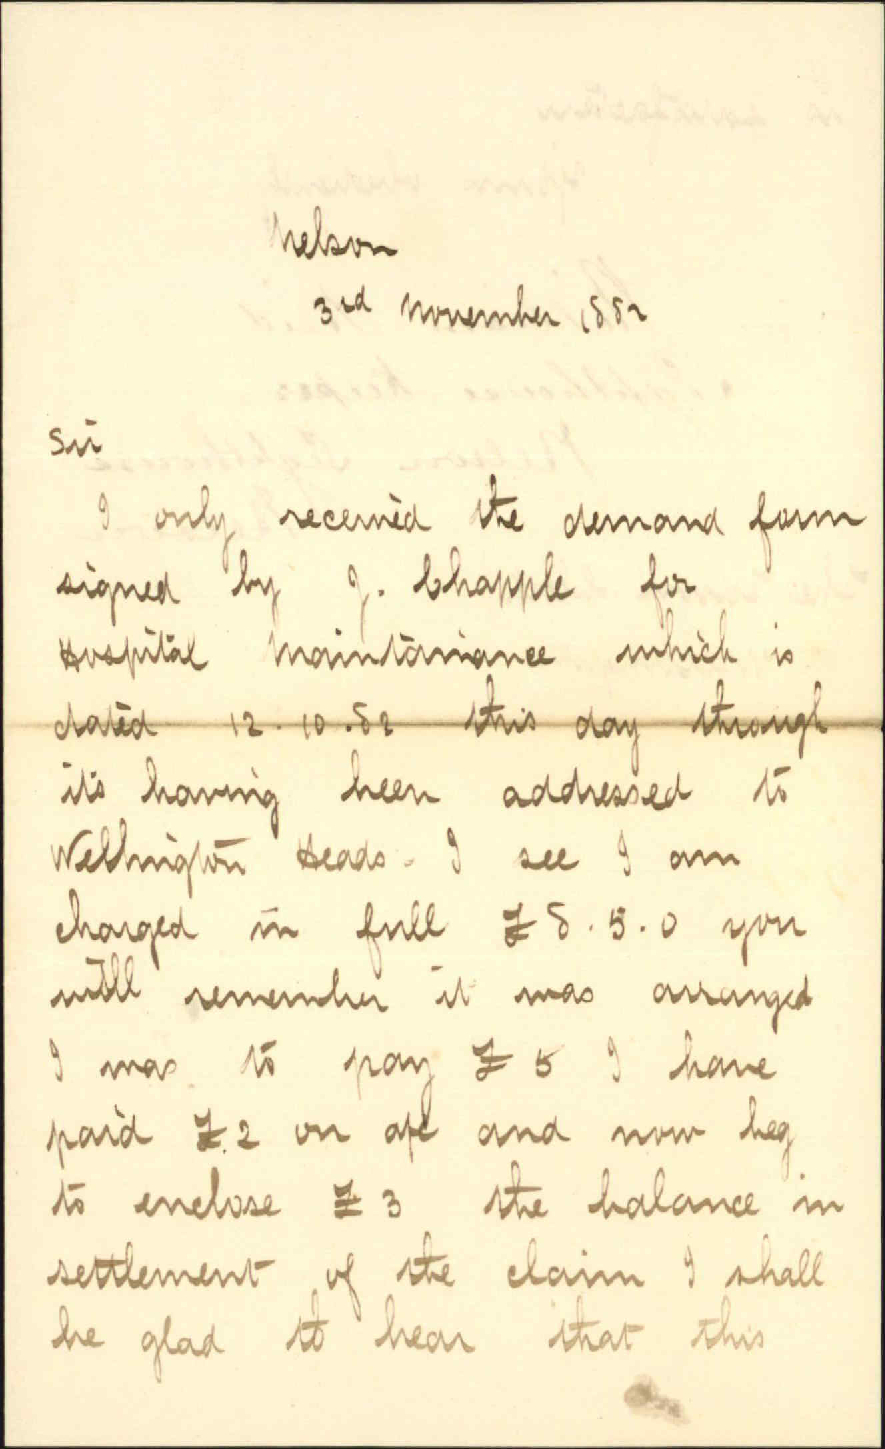 Nelson
3rd November 1882
Sir
I only received the demand form
signed by J. Chapple for
Hospital Maintainance which is
dated 12.10.82 this day through
it's having been addressed to
Wellington Heads - I see I am
charged in full £8.5.0 you
will remember it was arranged
I was to pay £5 I have
paid £2 on a/c and now beg
to enclose £3 the balance in
settlement of the claim I shall
be glad to hear that this